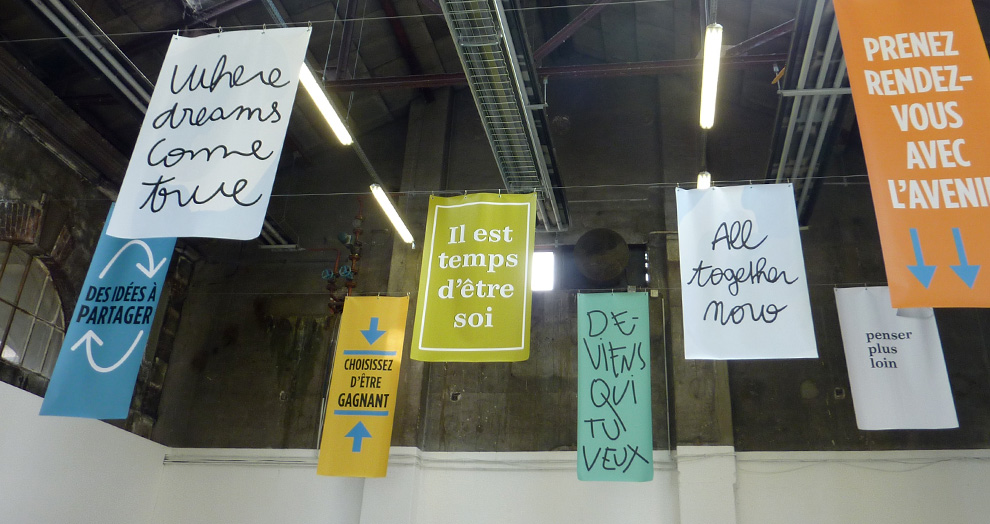 Where
dreams
come
true
DES IDÉES À
PARTAGER
CHOISISSEZ
D'ÊTRE
GAGNANT
Il est
temps
d'être
soi
DE-
VIENS
QUI
TU
VEUX
All
together
now
penser
plus
loin
PRENEZ
RENDEZ-
VOUS
AVEC
L'AVENI